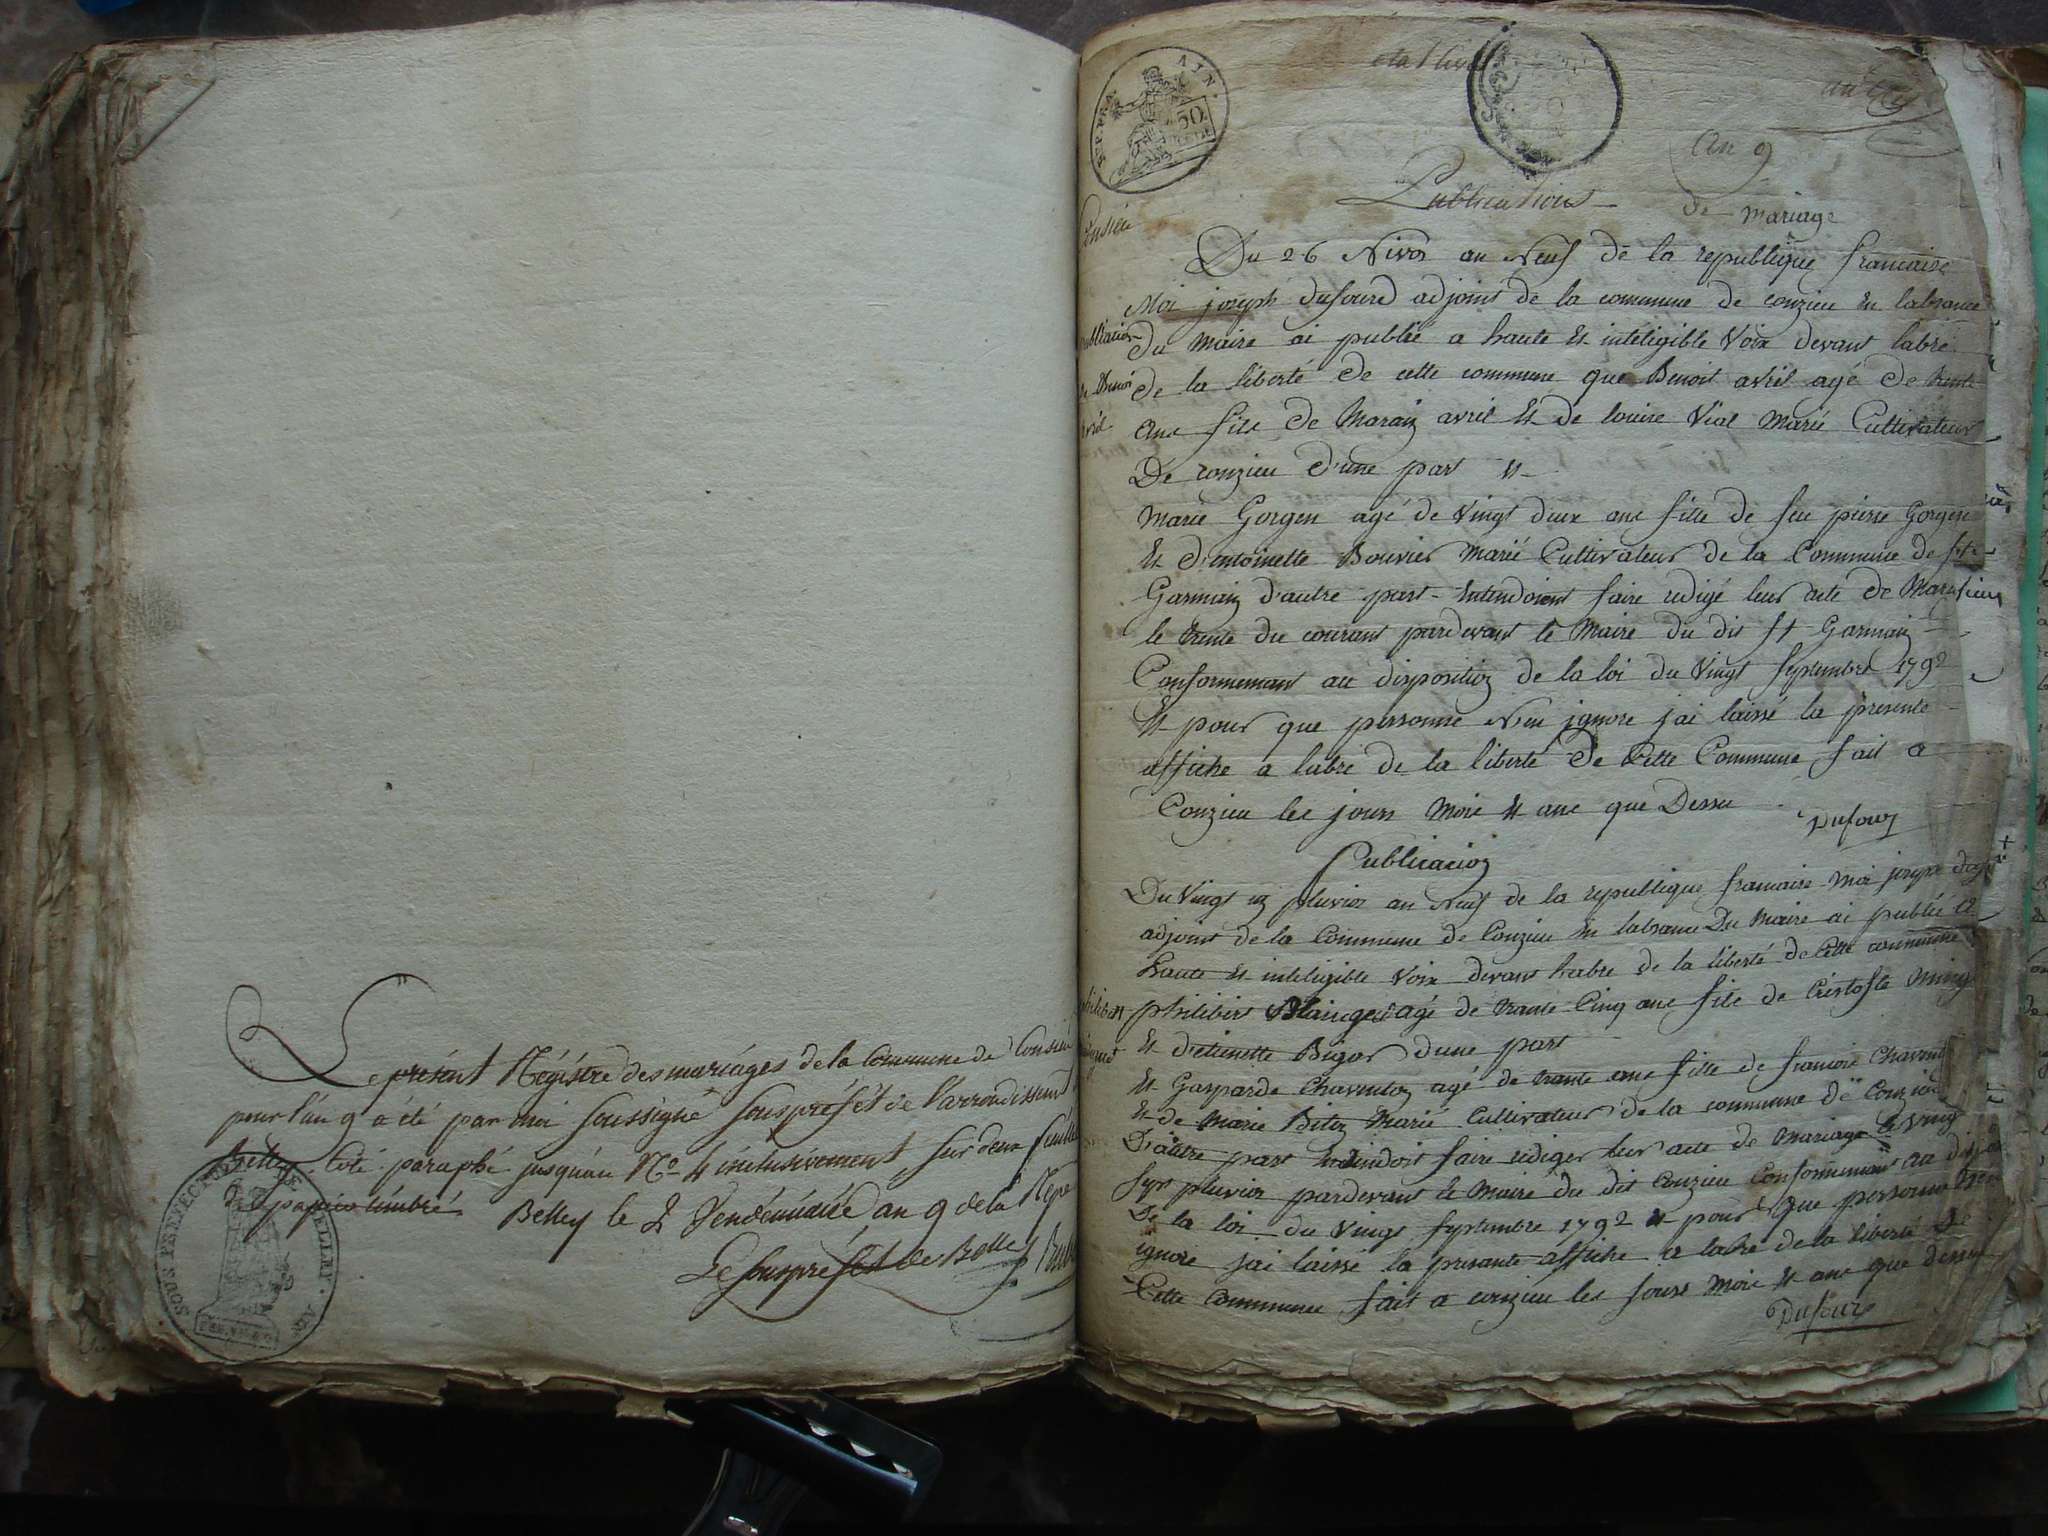 Le présent Régistre des mariages de la Commune de Consieu
pour l'an 9 a été par moi soussigné Souspréfet de l'arrondissement
de Belley, coté paraphé jusqu'au No 4 inclusivement, sur deux feuilles
papier timbré Belley le 2 Vendémiaire an 9 de la Repu
Le Souspréfet de Belley
SOUS PREFECTURE DE BELLEY
REP. FRA.
AIN.
50
An 9
Publications de mariage
Consieu
Du 26 Nivos an Neuf de la republique francaise
Moi joseph dufourd adjoint de la commune de conzieu En labsance
du Maire ai publié a haute Et inteligible Voix devant labre
de la liberté de cette commune que Benoit avril agé de trente
ans fils de Marain avril Et de louise Vial Marié Cultivateur
De conzieu d'une part Et
Marie Gorgen agé de Vingt deux ans fille de feu pierre Gorgen
Et d'entoinette Bouvier Marié Cultivateur de la Commune de St
Garmain d'autre part Entendoient faire redigé leur acte de Mar
le trente du courant pardevant le Maire du dit St Garmain
Conformemant au disposition de la loi du Vingt Septembre 1792
Et pour que personne Nen jgnore jai laissé la presente
affiche a labre de la liberté de Cette Commune fait a
Conzieu les jours Mois Et ans que Dessu
Dufour
publication
de Benoi
avril
Publicacion
Du Vingt un pluvios an Neuf de la republique francaise Moi joseph duf
adjoint de la Commune de Conzieu En labsance Du Maire ai publié a
haute Et inteligible Voix devant labre de la liberté de Cette commune
philibert agé de trante Cinq ans fils de Cristofle
Et d'etienette Bigot dune part
Et Gasparde Chaventon agé de trante ans fille de francois Chavent
Et de Marie Marié Cultivateur de la commune de Conzieu
D'autre part Entendoit faire rediger leur acte de Mariage le Vingt
Sept pluvios pardevant le Maire du dit Conzieu Conformemant au dispo
De la loi du Vingt Septembre 1792 Et pour que personne Nen
ignore jai laissé la presante affiche a labre de la liberté de
Cette Commune fait a conzieu les jours Mois Et ans que dessu
Dufour